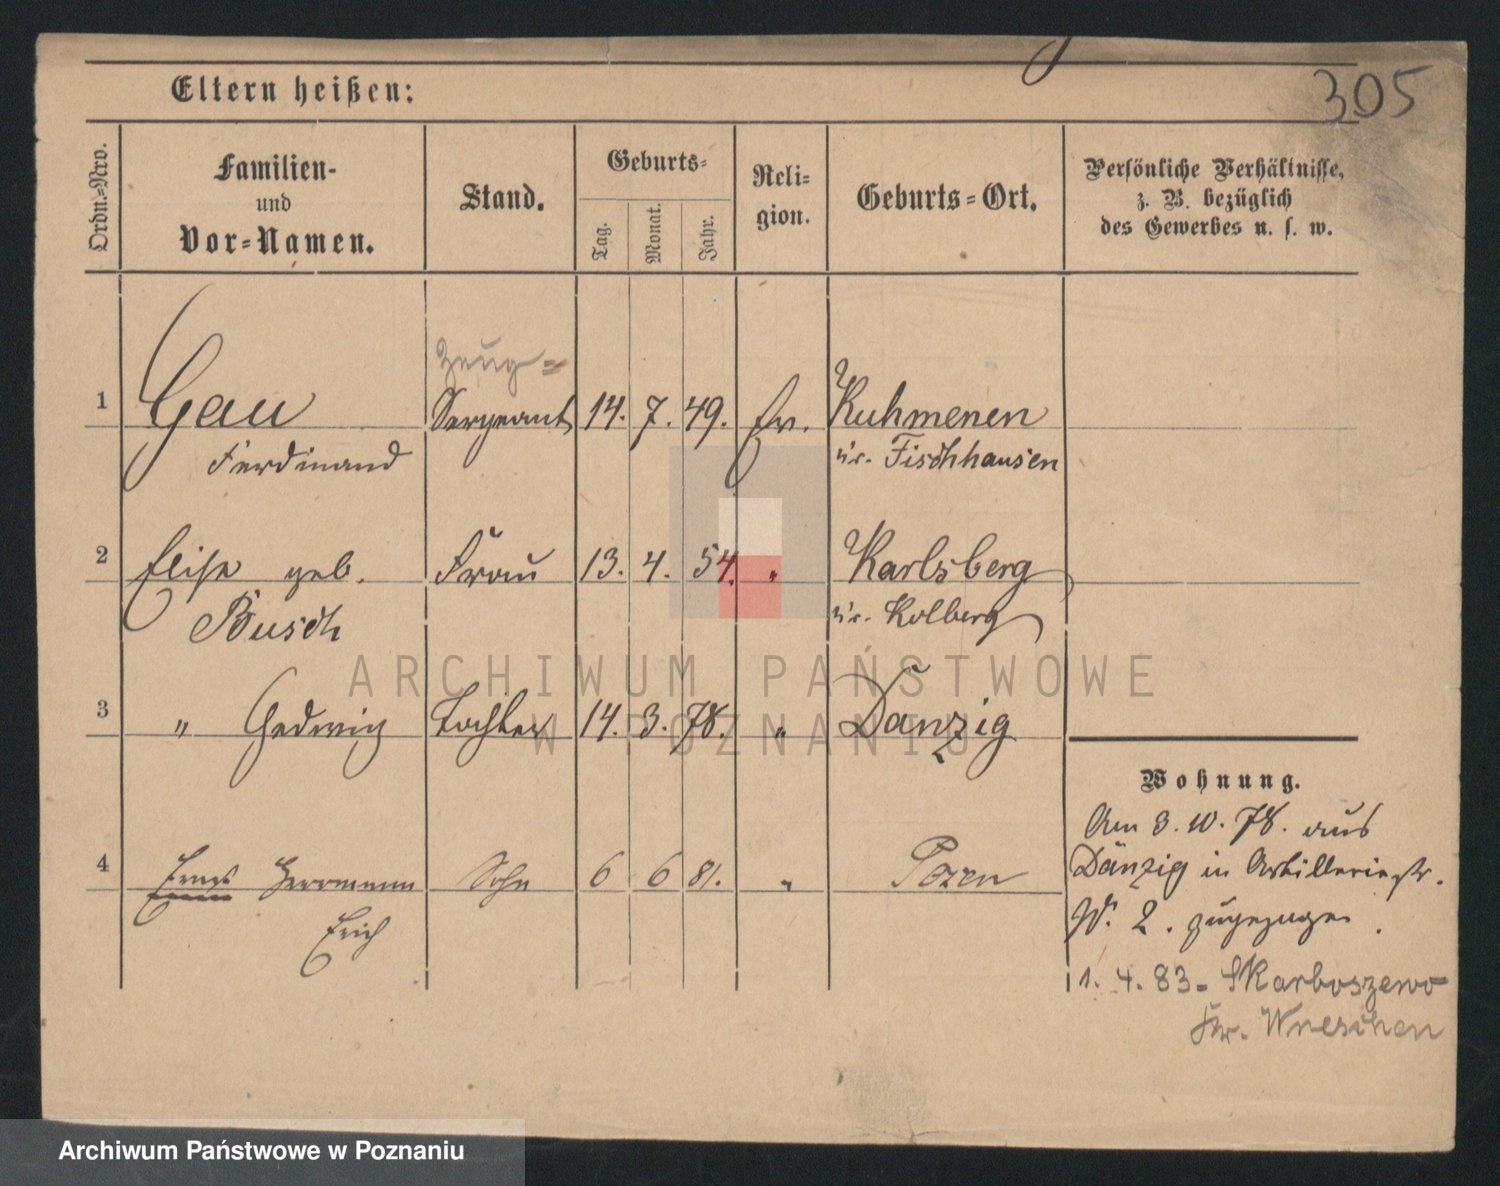 305
Eltern heißen:
Ordn.-Nro.
Familien-
und
Vor-Namen.
Stand.
Geburts-
Tag.
Monat.
Jahr.
Reli-
gion.
Geburts-Ort.
Persönliche Verhältnisse,
z. B. bezüglich
des Gewerbes u. s. w.
Zeug-
1 Gau Sergeant 14. 7. 49. Ev. Kuhmenen
Ferdinand Kr. Fischhausen
2 Elise geb. Frau 13. 4. 54. " Karlsberg
Busch Kr. Kolberg
3 " Hedwig Tochter 14. 3. 78. " Danzig
4 Ernst Herrmann Sohn 6 6 81. " Posen
Erich
Wohnung.
Am 3. 10. 78. aus
Danzig in Artilleriestr.
No. 2. zugezogen.
1. 4. 83 - Skarboszewo
Kr. Wreschen
ARCHIWUM PAŃSTWOWE
W POZNANIU
Archiwum Państwowe w Poznaniu